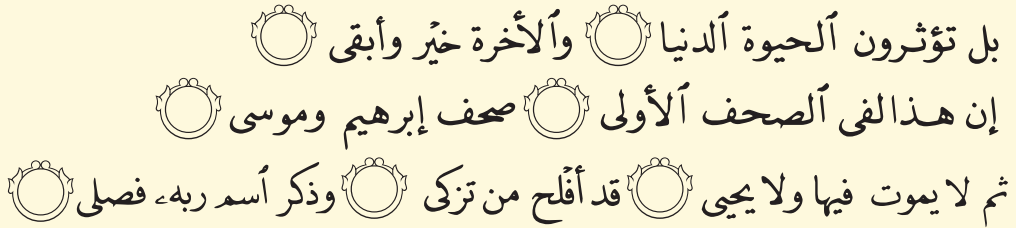 بل تؤثرون ٱلحيوة ٱلدنيا ۝ وٱلأخرة خيْر وأبقى ۝
إن هـذا لفى ٱلصحف ٱلأولى ۝ صحف إبرهيم وموسى ۝
ثم لا يموت فيها ولا يحيى ۝ قد أفْلح من تزكى ۝ وذكر ٱسم ربهۦ فصلى ۝